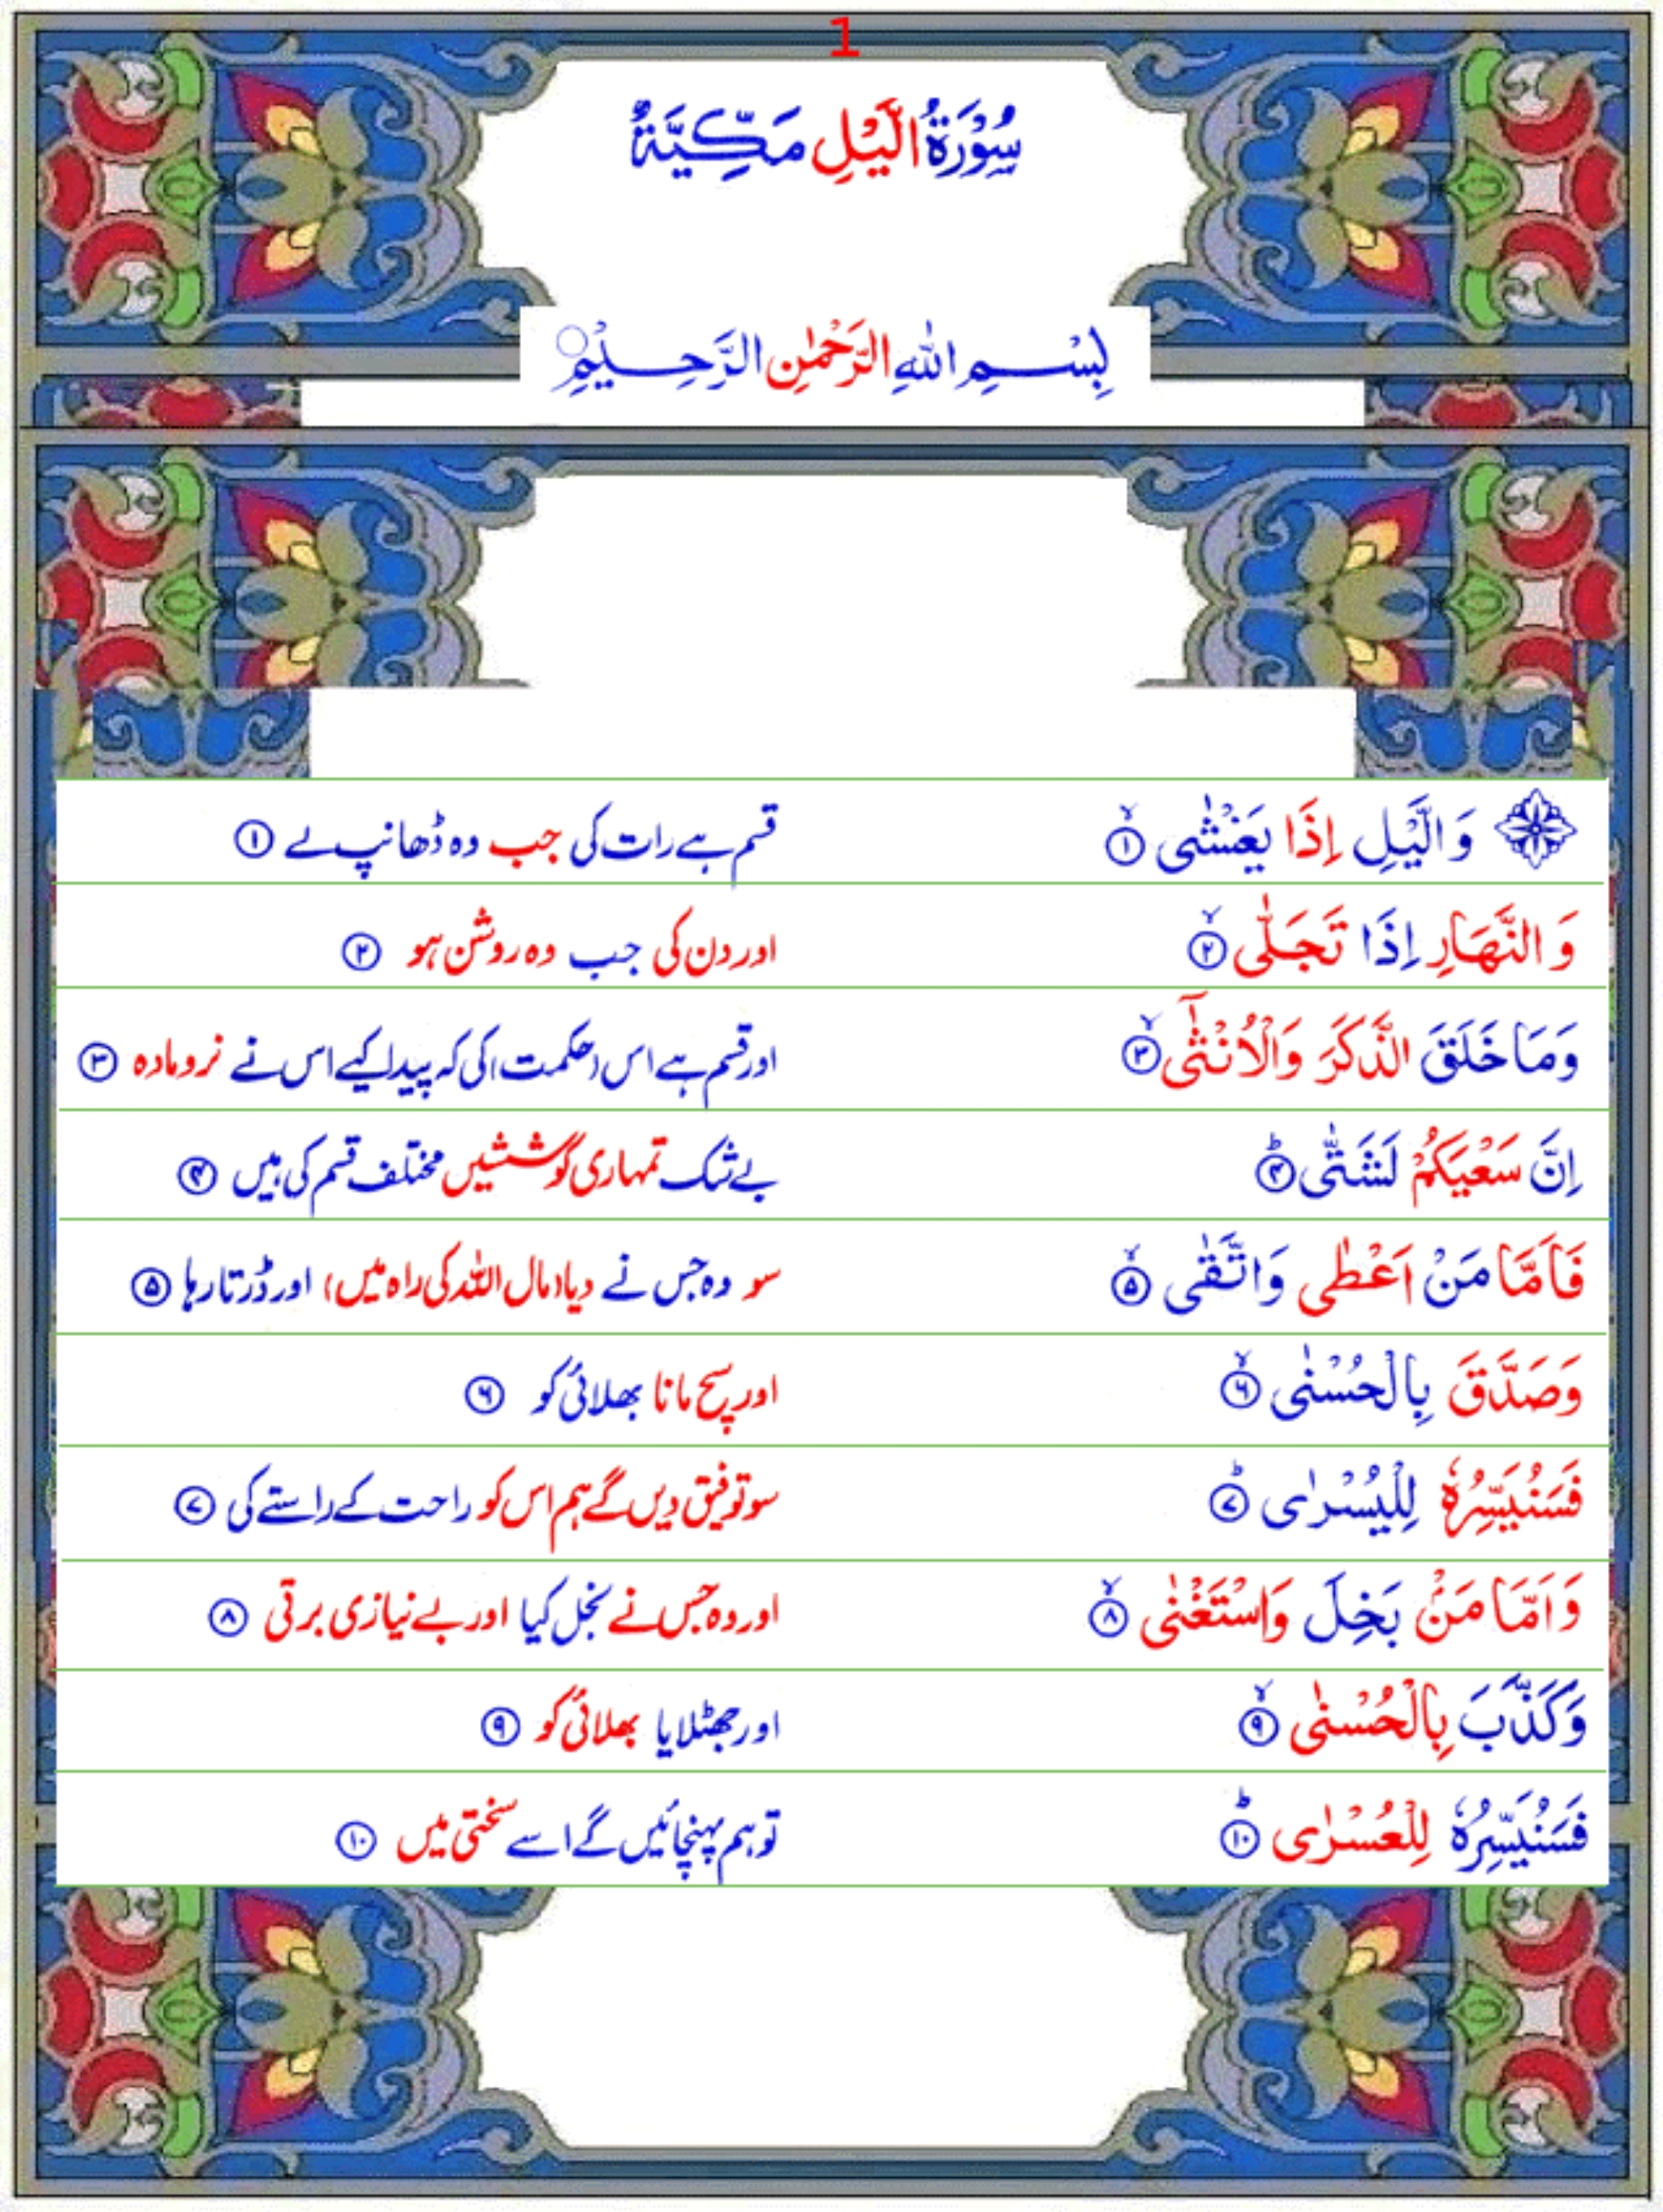 1
سُوْرَةُ الَّيْلِ مَكِّيَّةٌ
بِسْمِ اللهِ الرَّحْمٰنِ الرَّحِيْمِ
وَ الَّيْلِ اِذَا يَغْشٰى ۙ۱ قسم ہے رات کی جب وہ ڈھانپ لے ۱
وَ النَّهَارِ اِذَا تَجَلّٰى ۙ۲ اور دن کی جب وہ روشن ہو ۲
وَمَا خَلَقَ الذَّكَرَ وَالْاُنْثٰٓى ۙ۳ اور قسم ہے اس (حکمت) کی کہ پیدا کیے اس نے نر و مادہ ۳
اِنَّ سَعْيَكُمْ لَشَتّٰى ؕ۴ بے شک تمہاری کوششیں مختلف قسم کی ہیں ۴
فَاَمَّا مَنْ اَعْطٰى وَاتَّقٰى ۙ۵ سو وہ جس نے دیا (مال اللہ کی راہ میں) اور ڈرتا رہا ۵
وَصَدَّقَ بِالْحُسْنٰى ۙ۶ اور سچ مانا بھلائی کو ۶
فَسَنُيَسِّرُهٗ لِلْيُسْرٰى ؕ۷ سو توفیق دیں گے ہم اس کو راحت کے راستے کی ۷
وَ اَمَّا مَنْۢ بَخِلَ وَاسْتَغْنٰى ۙ۸ اور وہ جس نے بخل کیا اور بے نیازی برتی ۸
وَكَذَّبَ بِالْحُسْنٰى ۙ۹ اور جھٹلایا بھلائی کو ۹
فَسَنُيَسِّرُهٗ لِلْعُسْرٰى ؕ۱۰ تو ہم پہنچائیں گے اسے سختی میں ۱۰